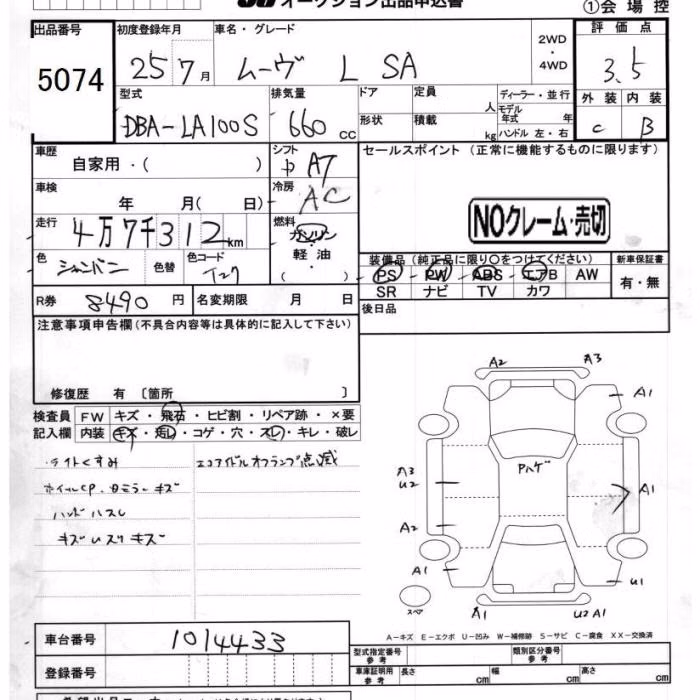 オークション出品申込書
①会場控
出品番号 初度登録年月 車名・グレード 2WD・4WD 評価点
5074 25年7月 ムーヴ L SA 3.5
型式 排気量 ドア 定員 人 ディーラー・並行 外装 内装
DBA-LA100S 660cc 形状 積載 kg モデル年式 年 ハンドル 左・右 C B
車歴 シフト セールスポイント (正常に機能するものに限ります)
自家用・( ) A7
車検 冷房
年 月( 日) AC
NOクレーム・売切
走行 燃料
4万7千312km ガソリン・軽油・( )
色 色替 色コード 装備品(純正品に限り○をつけてください) 新車保証書
シャンパン T27 PS PW ABS エアB AW 有・無
R券 8490円 名変期限 月 日 SR ナビ TV カワ
注意事項申告欄(不具合内容等は具体的に記入して下さい) 後日品
修復歴 有 〔箇所 〕
検査員 FW キズ・飛石・ヒビ割・リペア跡・×要
記入欄 内装 キズ・汚レ・コゲ・穴・スレ・キレ・破レ
・ライトくすみ エコアイドルオフランプ点滅
ホイールCP、
ハンドルスレ
A2 A3
A1
Pハゲ
A3
U2
A1
A2
A1 U1
スペア
A1 U2 A1
A-キズ E-エクボ U-凹み W-補修跡 S-サビ C-腐食 XX-交換済
車台番号 1014433 型式指定番号 参考 類別区分番号 参考
登録番号 車庫証明用 参考 長さ cm 幅 cm 高さ cm